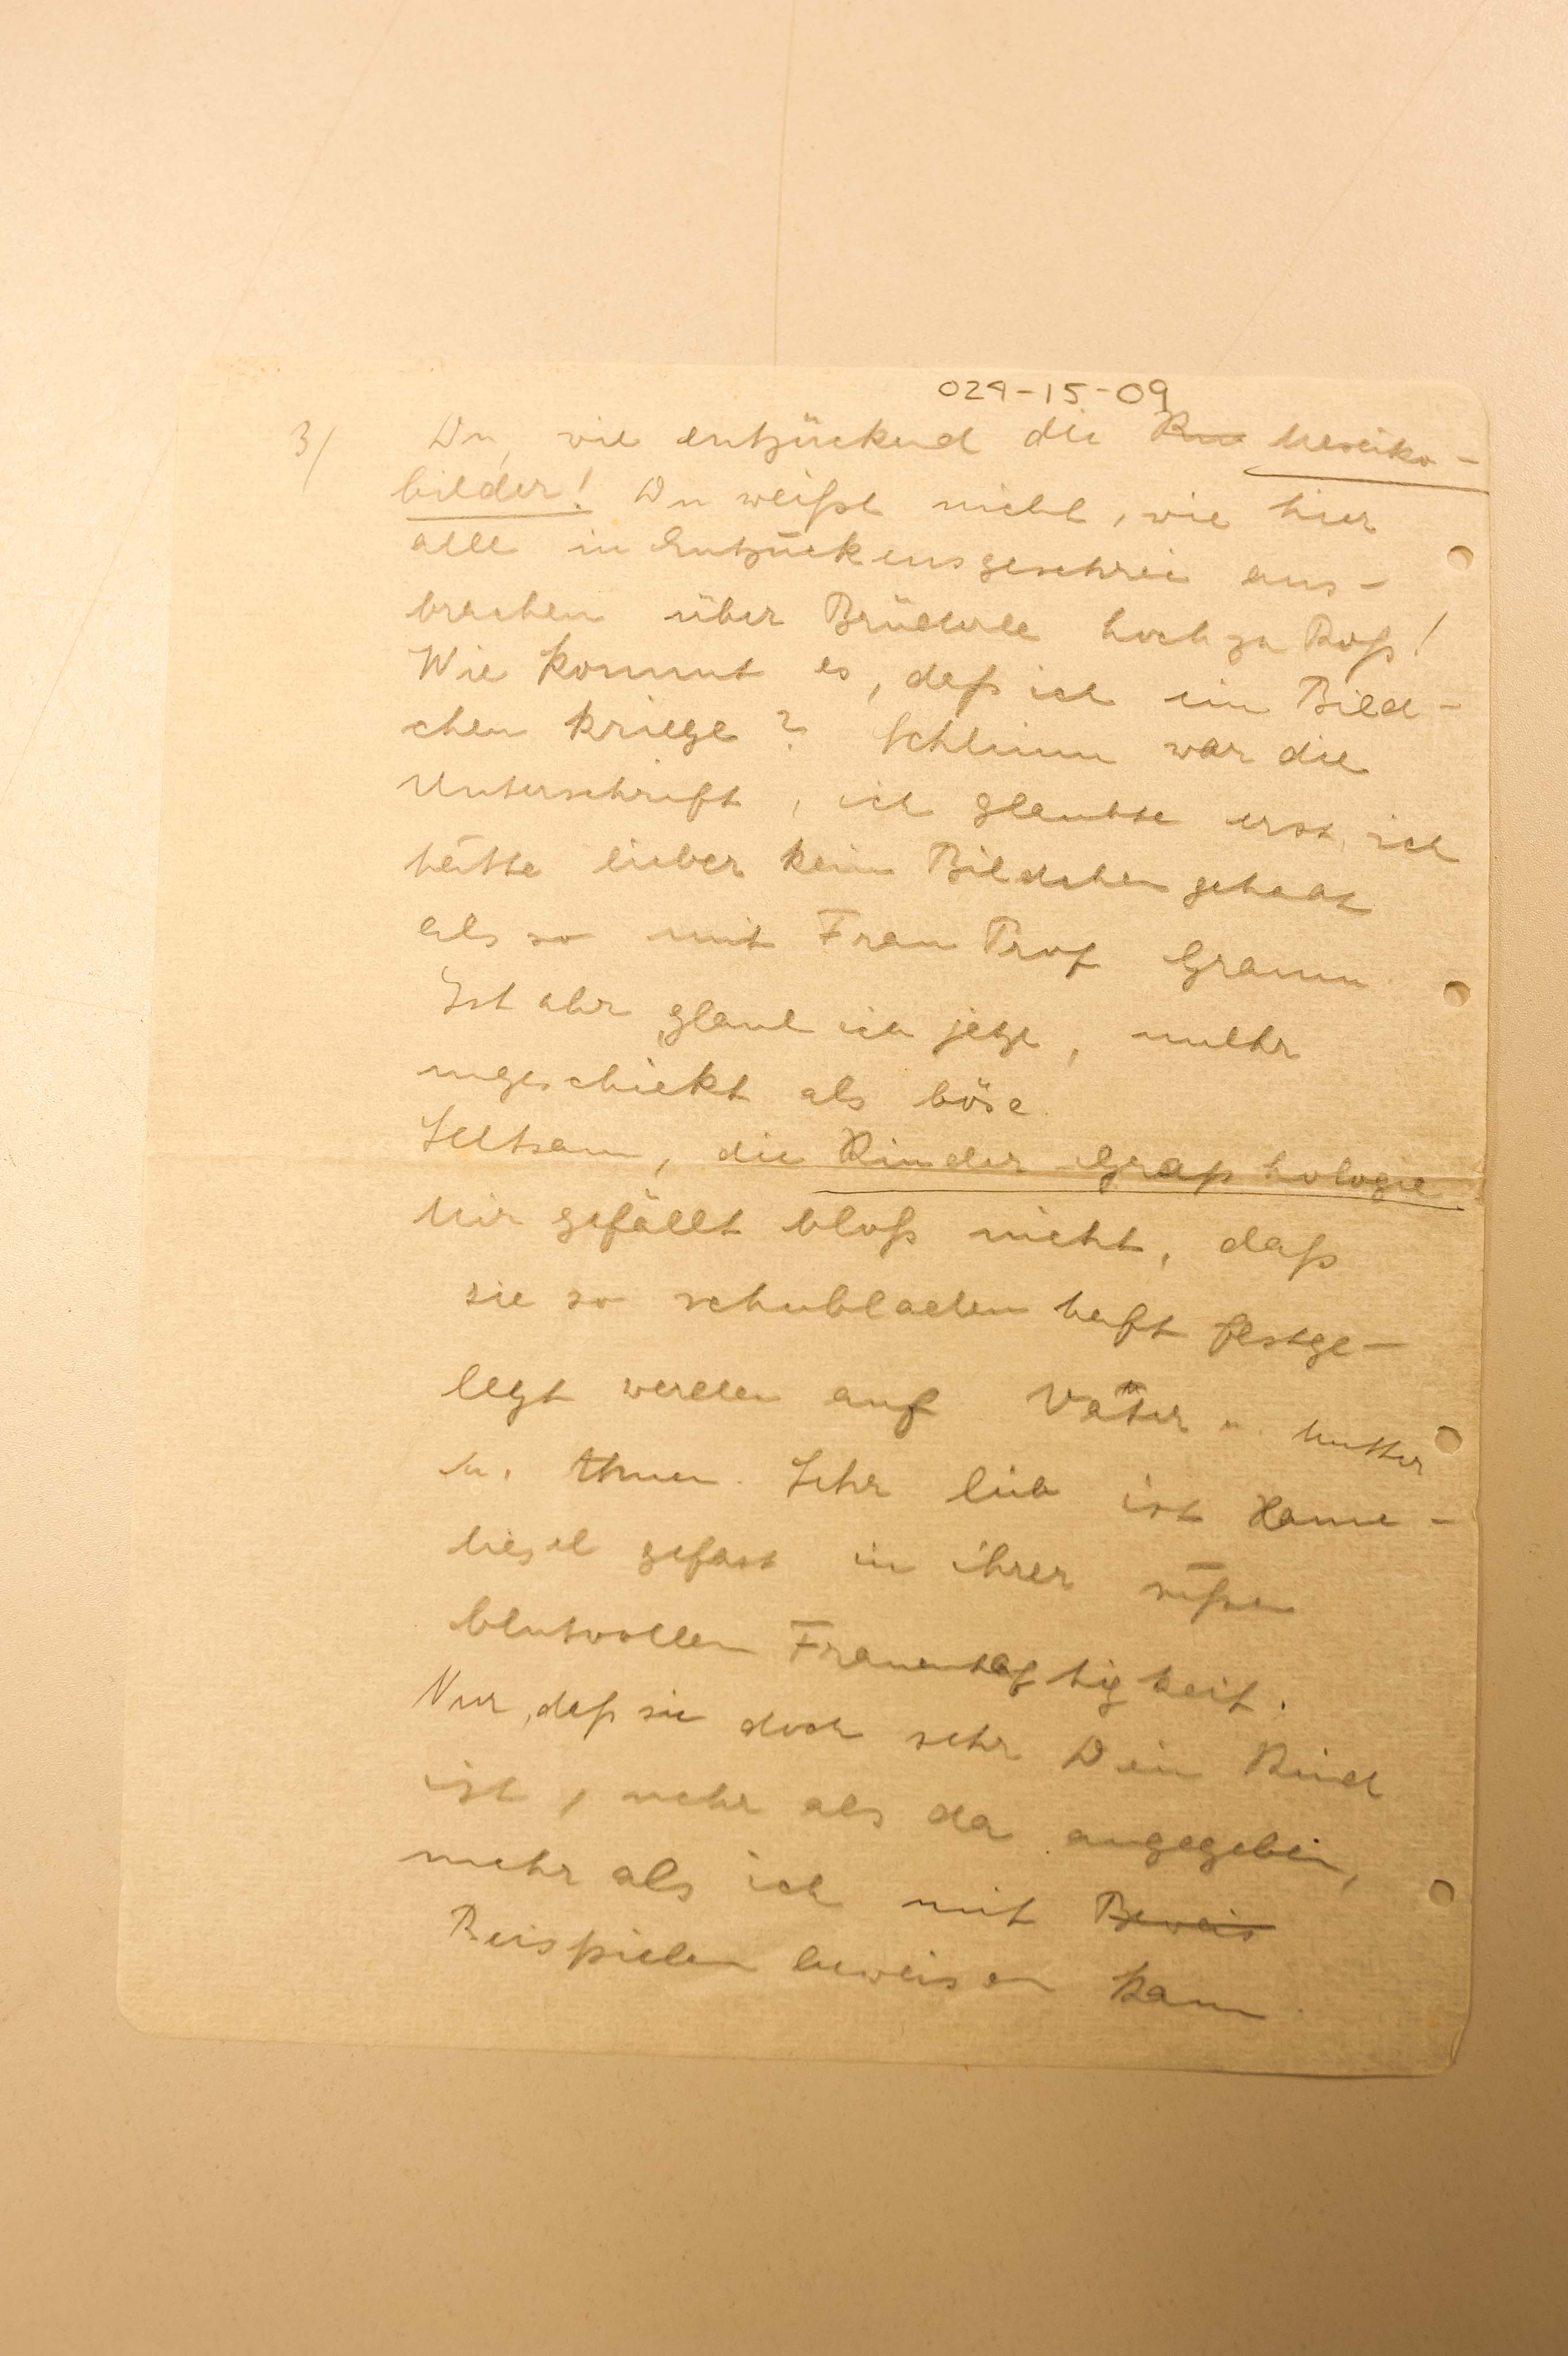 024-15-09
3/ Du, wie entzückend die Mexiko-
bilder! Du weißt nicht, wie hier
alle in Entzückensgeschrei aus-
brachen über Brüderle hoch zu Roß!
Wie kommt es, daß ich ein Bild-
chen kriege? Schlimm war die
Unterschrift, ich glaubte erst, ich
hätte lieber kein Bildchen gehabt
als so mit Frau Prof
Ist aber, glaub ich jetzt, mehr
ungeschickt als böse.
Seltsam, die Kinder Graphologie
Mir gefällt bloß nicht, daß
sie so schubladenhaft festge-
legt werden auf Väter u. Mutter
u. Ahnen. Sehr lieb ist Hanne-
liesel gefast in ihrer süßen
blutvollen Frauenhaftigkeit.
Nur, daß sie doch sehr Dein Kind
ist, mehr als da angegeben,
mehr als ich mit Beweis
Beispielen beweisen kann.